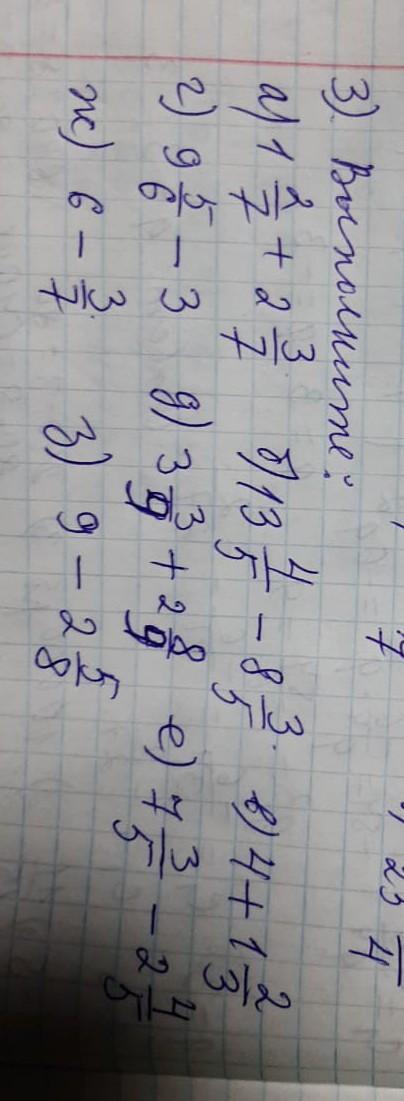 3) Выполните:
а) 1 2/7 + 2 3/7 б) 13 4/5 - 8 3/5 в) 4 + 1 2/3
г) 9 5/6 - 3 д) 3 3/9 + 2 8/9 е) 7 3/5 - 2 4/5
ж) 6 - 3/7 з) 9 - 2 5/8